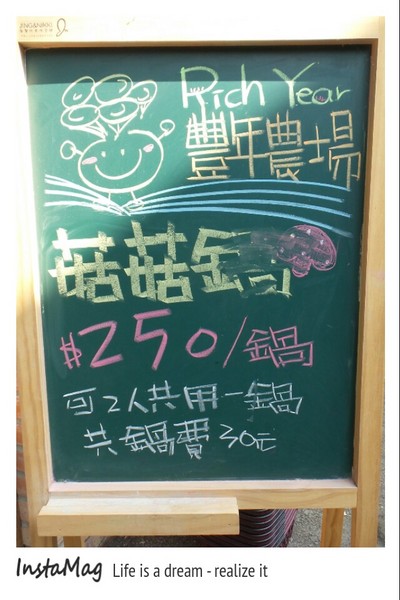 Rich Year
豐年農場
菇菇
$250/鍋
可2人共用一鍋
共鍋費30元
InstaMag Life is a dream - realize it